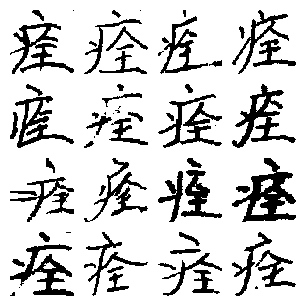 痊痊痊痊
痊痊痊痊
痊痊痊痊
痊痊痊痊